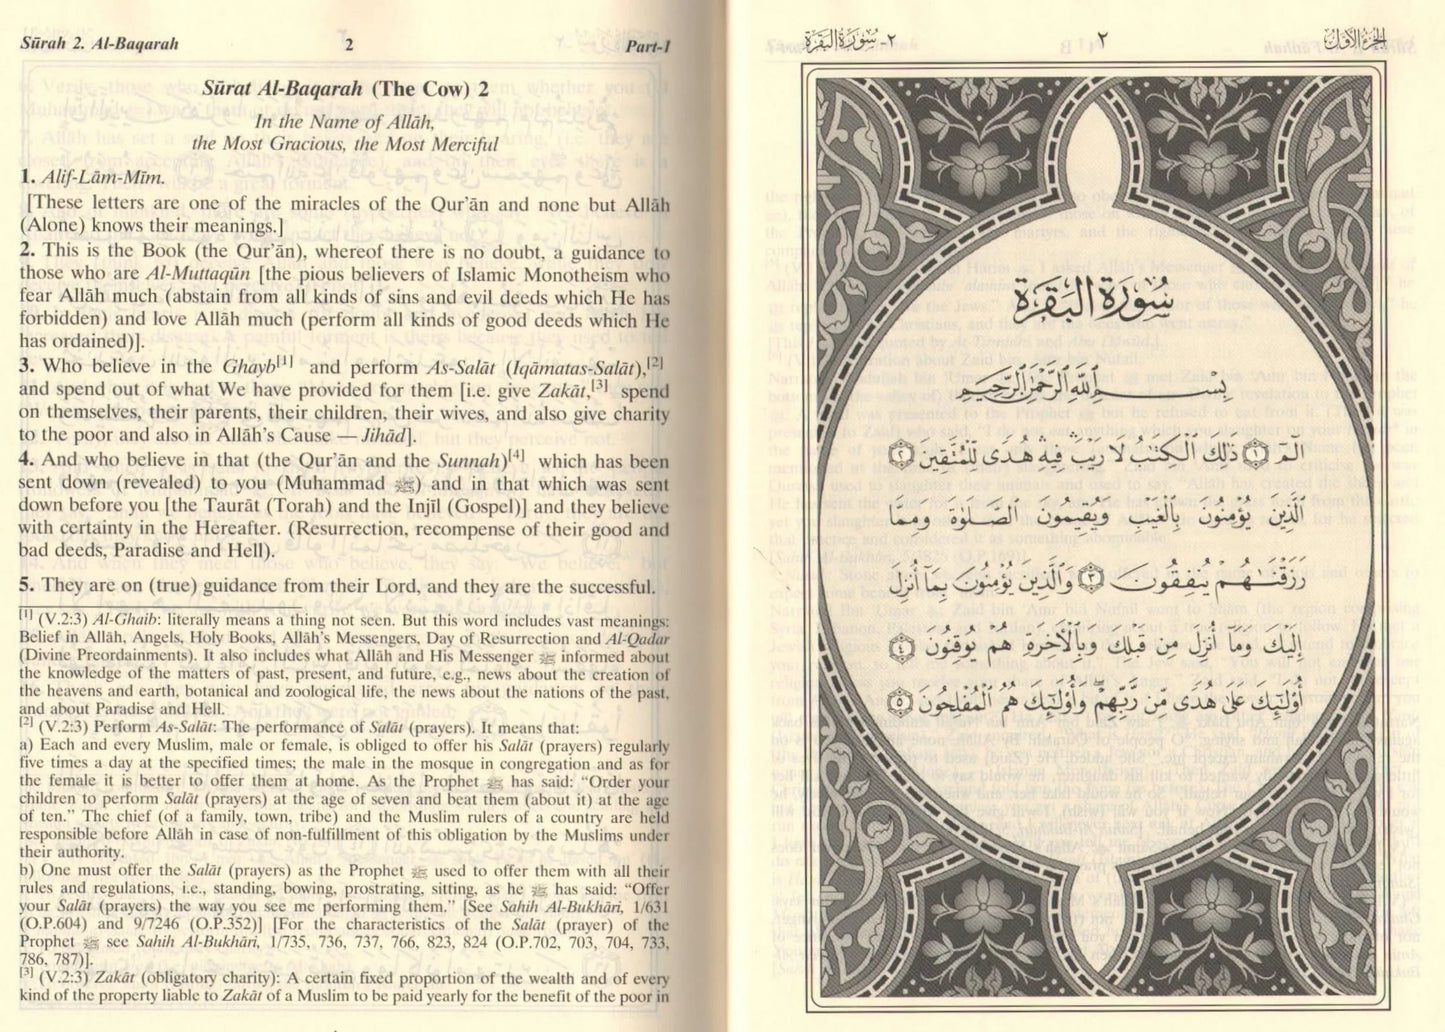 Sūrah 2. Al-Baqarah 2 Part-1
Sūrat Al-Baqarah (The Cow) 2
In the Name of Allāh,
the Most Gracious, the Most Merciful
1. Alif-Lām-Mīm.
[These letters are one of the miracles of the Qur'ān and none but Allāh
(Alone) knows their meanings.]
2. This is the Book (the Qur'ān), whereof there is no doubt, a guidance to
those who are Al-Muttaqūn [the pious believers of Islamic Monotheism who
fear Allāh much (abstain from all kinds of sins and evil deeds which He has
forbidden) and love Allāh much (perform all kinds of good deeds which He
has ordained)].
3. Who believe in the Ghayb[1] and perform As-Salāt (Iqāmatas-Salāt),[2]
and spend out of what We have provided for them [i.e. give Zakāt,[3] spend
on themselves, their parents, their children, their wives, and also give charity
to the poor and also in Allāh's Cause — Jihād].
4. And who believe in that (the Qur'ān and the Sunnah)[4] which has been
sent down (revealed) to you (Muhammad ﷺ) and in that which was sent
down before you [the Taurāt (Torah) and the Injīl (Gospel)] and they believe
with certainty in the Hereafter. (Resurrection, recompense of their good and
bad deeds, Paradise and Hell).
5. They are on (true) guidance from their Lord, and they are the successful.
[1] (V.2:3) Al-Ghaib: literally means a thing not seen. But this word includes vast meanings:
Belief in Allāh, Angels, Holy Books, Allāh's Messengers, Day of Resurrection and Al-Qadar
(Divine Preordainments). It also includes what Allāh and His Messenger ﷺ informed about
the knowledge of the matters of past, present, and future, e.g., news about the creation of
the heavens and earth, botanical and zoological life, the news about the nations of the past,
and about Paradise and Hell.
[2] (V.2:3) Perform As-Salāt: The performance of Salāt (prayers). It means that:
a) Each and every Muslim, male or female, is obliged to offer his Salāt (prayers) regularly
five times a day at the specified times; the male in the mosque in congregation and as for
the female it is better to offer them at home. As the Prophet ﷺ has said: “Order your
children to perform Salāt (prayers) at the age of seven and beat them (about it) at the age
of ten.” The chief (of a family, town, tribe) and the Muslim rulers of a country are held
responsible before Allāh in case of non-fulfillment of this obligation by the Muslims under
their authority.
b) One must offer the Salāt (prayers) as the Prophet ﷺ used to offer them with all their
rules and regulations, i.e., standing, bowing, prostrating, sitting, as he ﷺ has said: “Offer
your Salāt (prayers) the way you see me performing them.” [See Sahih Al-Bukhāri, 1/631
(O.P.604) and 9/7246 (O.P.352)] [For the characteristics of the Salāt (prayer) of the
Prophet ﷺ see Sahih Al-Bukhāri, 1/735, 736, 737, 766, 823, 824 (O.P.702, 703, 704, 733,
786, 787)].
[3] (V.2:3) Zakāt (obligatory charity): A certain fixed proportion of the wealth and of every
kind of the property liable to Zakāt of a Muslim to be paid yearly for the benefit of the poor in
الجزء الأول ٢ ٢- سورة البقرة
سُورَةُ البَقَرَةِ
بِسْمِ اللَّهِ الرَّحْمَٰنِ الرَّحِيمِ
الٓمٓ ١ ذَٰلِكَ الْكِتَٰبُ لَا رَيْبَ فِيهِ هُدًى لِّلْمُتَّقِينَ ٢
الَّذِينَ يُؤْمِنُونَ بِالْغَيْبِ وَيُقِيمُونَ الصَّلَوٰةَ وَمِمَّا
رَزَقْنَٰهُمْ يُنفِقُونَ ٣ وَالَّذِينَ يُؤْمِنُونَ بِمَآ أُنزِلَ
إِلَيْكَ وَمَآ أُنزِلَ مِن قَبْلِكَ وَبِالْأَخِرَةِ هُمْ يُوقِنُونَ ٤
أُوْلَٰٓئِكَ عَلَىٰ هُدًى مِّن رَّبِّهِمْ وَأُوْلَٰٓئِكَ هُمُ الْمُفْلِحُونَ ٥